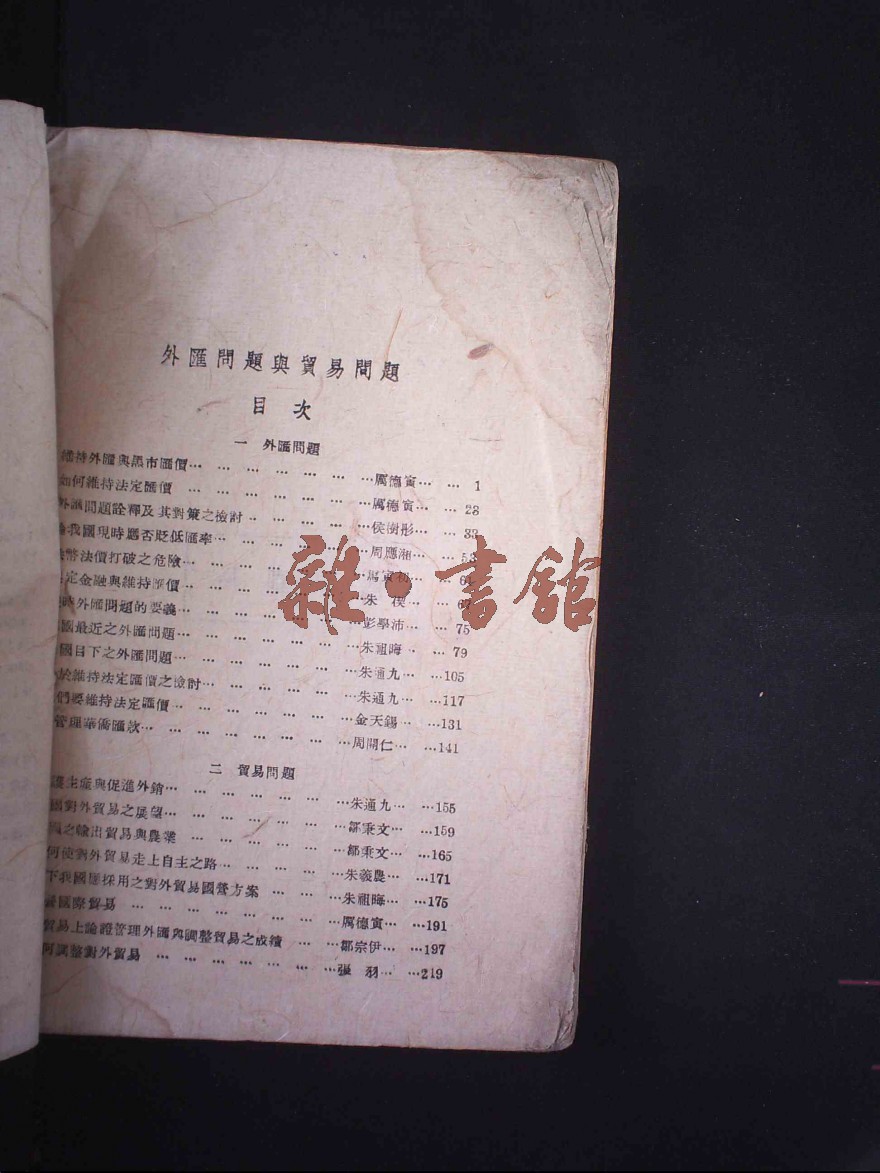 外匯問題與貿易問題
目次
一 外匯問題
維持外匯與黑市匯價… … … … … … … …厲德寅… … 1
如何維持法定匯價 … … … … … … …厲德寅… … 23
外滙問題詮釋及其對策之檢討… … … … … …侯樹彤… … 33
我國現時應否貶低匯率… … … … … … …周應湘… … 53
幣法價打破之危險… … … … … … …馬寅初… … 61
定金融與維持匯價… … … … … … …朱 偰… … 67
時外匯問題的要義… … … … … … …彭學沛… … 75
國最近之外匯問題… … … … … … …朱祖晦… … 79
國目下之外匯問題… … … … … … …朱通九… …105
於維持法定匯價之檢討… … … … … …朱通九… …117
們要維持法定匯價… … … … … … …金天錫… …131
管理華僑匯款… … … … … … … …周開仁… …141
二 貿易問題
主產與促進外銷… … … … … … …朱通九… …155
對外貿易之展望… … … … … … …鄒秉文… …159
之輸出貿易與農業 … … … … … …鄒秉文… …165
何使對外貿易走上自主之路… … … … …朱義農… …171
下我國應採用之對外貿易國營方案 … … …朱祖晦… …175
國際貿易 … … … … … … … …厲德寅… …191
貿易上論證管理外匯與調整貿易之成績 … …鄒宗伊… …197
何調整對外貿易 … … … … … … …張 羽… …219
雜·書館